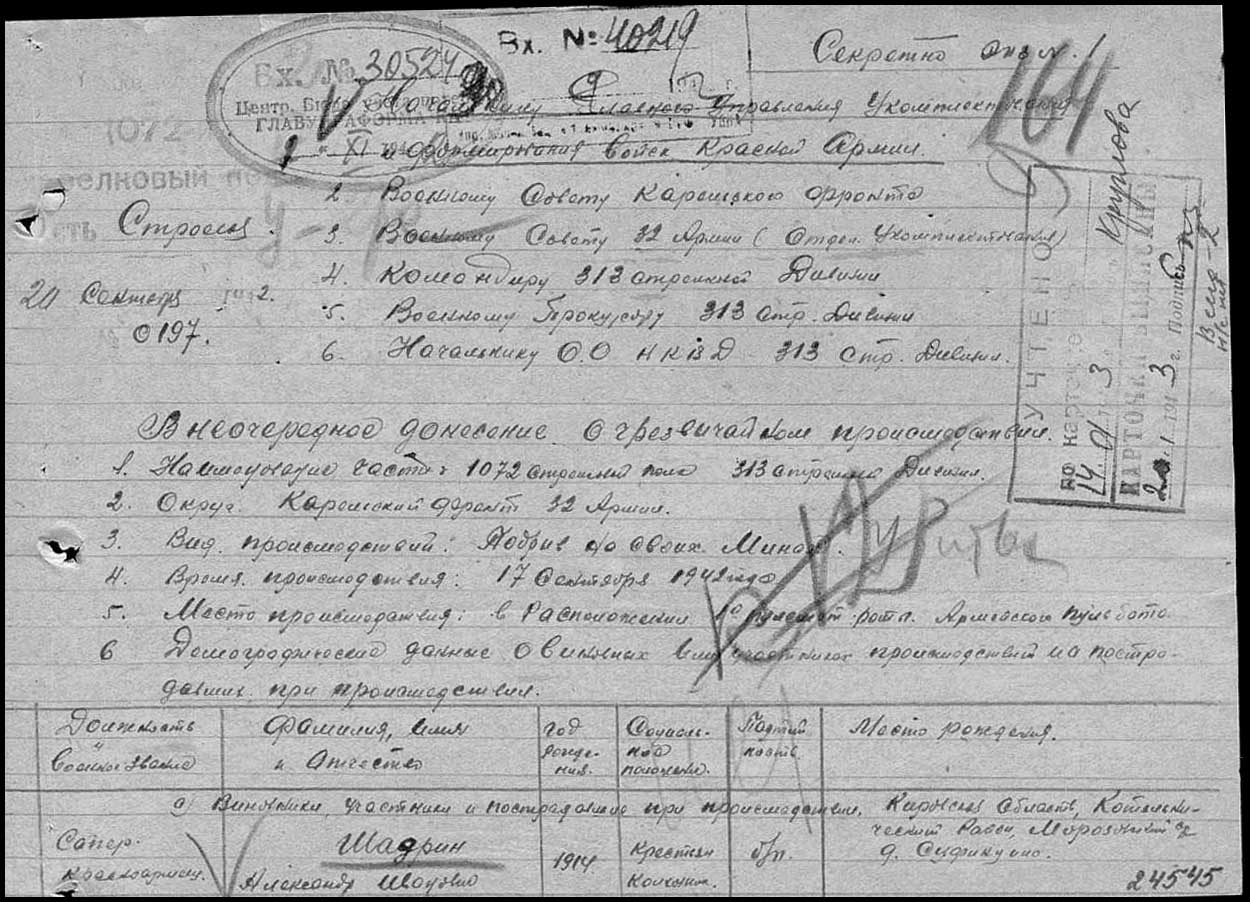 Вх. № 40219
Вх. № 30524
Центр. Бюро
Секретно экз. №. 1
164
1072
Начальнику Главного Управления Укомплектования
и формирования войск Красной Армии.
2. Военному Совету Карельского фронта
Строевы
3. Военному Совету 32 Армии (Отдел. Укомплектования)
4. Командиру 313 стрелковой Дивизии
20 Сентября 1942.
5. Военному Прокурору 313 стр. Дивизии
0197.
6. Начальнику О.О НКВД 313 стр. Дивизии.
УЧТЕНО
Круглова
по картотеке
14. 01 3
КАРТОЧКИ ВЫПИСАНЫ
1943 г. Подпись
Внеочередное донесение о чрезвычайном происшествии.
1. Наименование части: 1072 стрелковый полк 313 стрелковой Дивизии.
2. Округ: Карельский фронт 32 Армии.
3. Вид происшествий: Подрыв на своих Минах.
4. Время происшествия: 17 Сентября 1942 года
5. Место происшествия: в Расположении 1й пулемет. роты. Армейского пульбата.
6 Демографические данные о виновных и участниках происшествий и на постра-
давших при происшествии.
Должность и Военное звание
Фамилия, имя и Отчество
год рожде-ния.
Социаль-ное положение.
Партий-ность.
Место рождения.
а) Виновники, участники и пострадавшие при происшествии.
Сапер. красноармеец.
Шадрин
Александр Иванович
1914
Крестьян Колхозник.
б/п.
Кировская область, Котельни-
ческий Район, Морозовский с/с
д.
24545